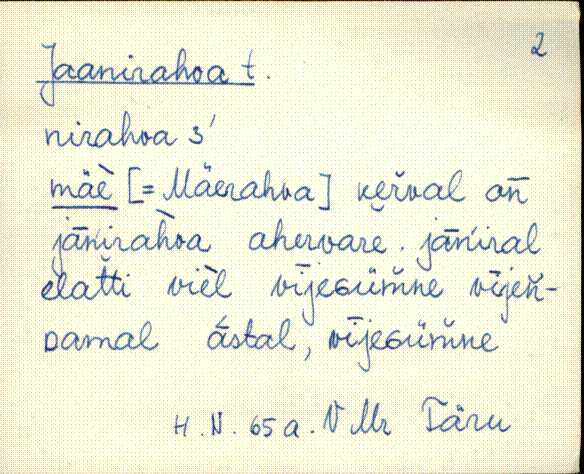 2
Jaanirahva t.
nirahva 3'
mäè [= Mäerahva] kērval on̄
jāńirah̀va ahervare. jāńiral
elat̆ti vièl vījesüm̆ne vījen̆-
damal ástal, vījesüm̆ne
H. N. 65 a. V Mr Täru